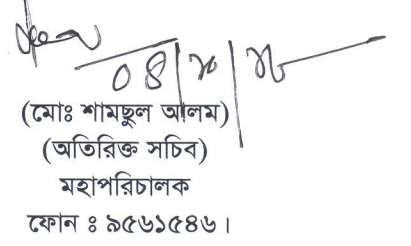 (মোঃ শামছুল আলম)
(অতিরিক্ত সচিব)
মহাপরিচালক
ফোন ঃ ৯৫৬১৫৪৬।